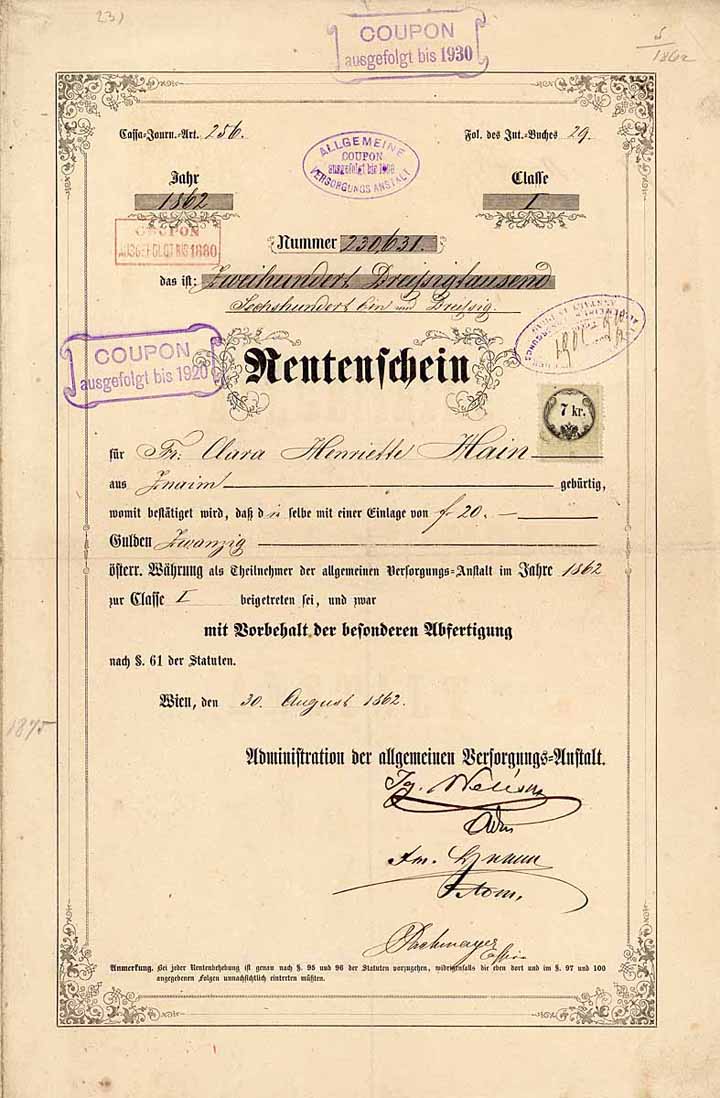 23)
COUPON
ausgefolgt bis 1930
5
1862
Cassa-Journ.-Art. 256.
Fol. des Int.-Buches 29.
ALLGEMEINE
COUPON
ausgefolgt bis
VERSORGUNGSANSTALT
Jahr
1862
Classe
I
COUPON
AUSGEFOLGT BIS 1880
Nummer 230,631.
das ist: Zweihundert Dreißigtausend
Sechshundert Ein und Dreißig.
COUPON
ausgefolgt bis 1920
Rentenschein
7 kr.
für Fr. Clara Henriette Hain
aus Znaim gebürtig,
womit bestätiget wird, daß die selbe mit einer Einlage von f 20.—
Gulden Zwanzig
österr. Währung als Theilnehmer der allgemeinen Versorgungs-Anstalt im Jahre 1862
zur Classe I beigetreten sei, und zwar
mit Vorbehalt der besonderen Abfertigung
nach §. 61 der Statuten.
Wien, den 30. August 1862.
1875
Administration der allgemeinen Versorgungs-Anstalt.
Anmerkung. Bei jeder Rentenbehebung ist genau nach §. 95 und 96 der Statuten vorzugehen, widrigenfalls die eben dort und im §. 97 und 100
angegebenen Folgen unnachsichtlich eintreten müßten.